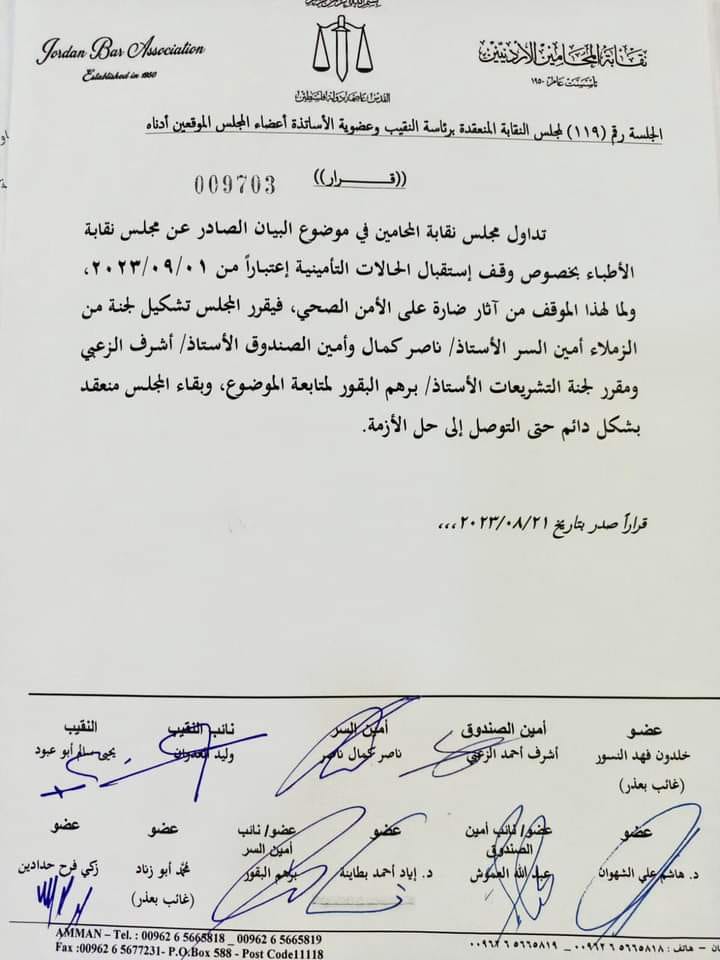 Jordan Bar Association
Established in 1950
نقابة المحامين الأردنيين
تأسست عام ١٩٥٠
القدس عاصمة دولة فلسطين
الجلسة رقم (١١٩) لمجلس النقابة المنعقدة برئاسة النقيب وعضوية الأساتذة أعضاء المجلس الموقعين أدناه
((قـــــــرار))
009703
تداول مجلس نقابة المحامين في موضوع البيان الصادر عن مجلس نقابة
الأطباء بخصوص وقف إستقبال الحالات التأمينية إعتباراً من ٢٠٢٣/٠٩/٠١،
ولما لهذا الموقف من آثار ضارة على الأمن الصحي، فيقرر المجلس تشكيل لجنة من
الزملاء أمين السر الأستاذ/ ناصر كمال وأمين الصندوق الأستاذ/ أشرف الزعبي
ومقرر لجنة التشريعات الأستاذ/ برهم البقور لمتابعة الموضوع، وبقاء المجلس منعقد
بشكل دائم حتى التوصل إلى حل الأزمة.
قراراً صدر بتاريخ ٢٠٢٣/٠٨/٢١،،،
عضو أمين الصندوق أمين السر نائب النقيب النقيب
خلدون فهد النسور أشرف أحمد الزعبي ناصر كمال ناصر وليد العدوان يحيى سالم أبو عبود
(غائب بعذر)
عضو عضو/ نائب أمين عضو عضو/ نائب عضو عضو
الصندوق أمين السر
د. هاشم علي الشهوان عبد الله العموش د. إياد أحمد بطاينة برهم البقور محمد أبو زناد زكي فرح حدادين
(غائب بعذر)
AMMAN – Tel. : 00962 6 5665818 _ 00962 6 5665819
Fax :00962 6 5677231- P.O.Box 588 - Post Code11118
هاتف : ٠٠٩٦٢ ٦ ٥٦٦٥٨١٨ _ ٠٠٩٦٢ ٦ ٥٦٦٥٨١٩